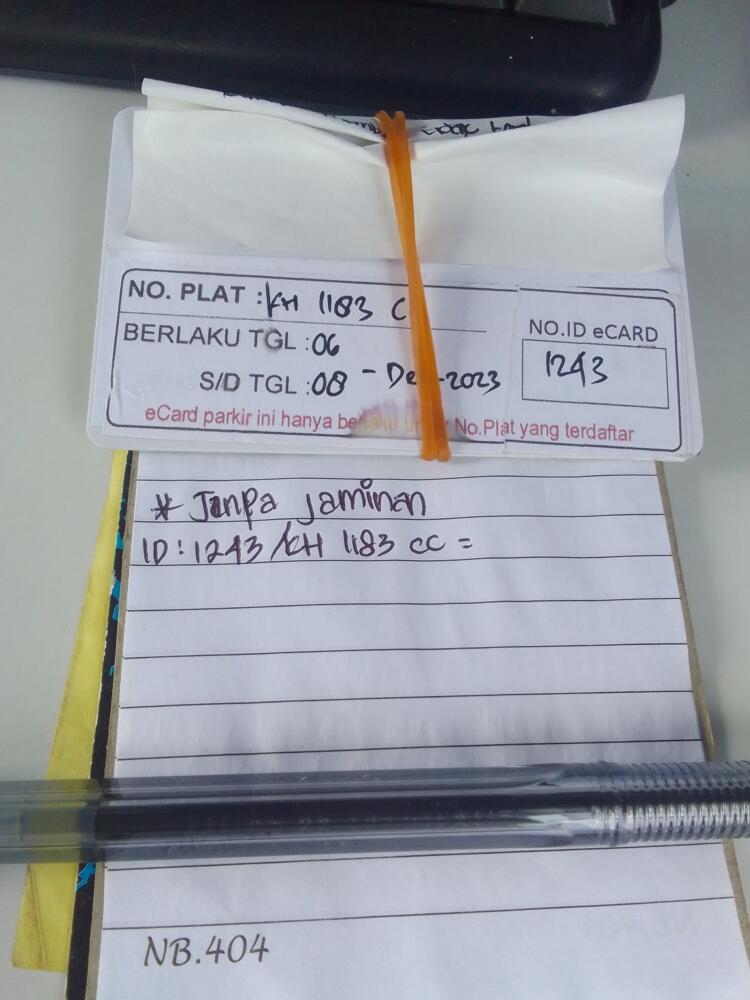 NO. PLAT : KH 1183 C
NO.ID eCARD
BERLAKU TGL : 06
1243
S/D TGL : 08 - De -2023
eCard parkir ini hanya berlaku No.Plat yang terdaftar
* Tanpa jaminan
ID : 1243 / KH 1183 CC =
NB.404